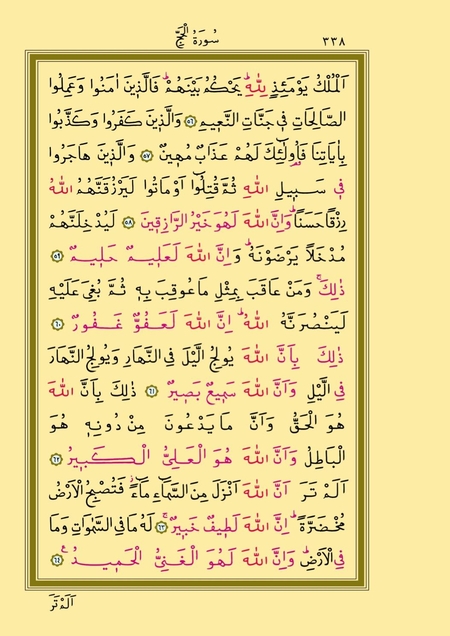 سُورَةُ الْحَجِّ ٣٣٨
اَلْمُلْكُ يَوْمَئِذٍ لِلّٰهِۜ يَحْكُمُ بَيْنَهُمْۜ فَالَّذ۪ينَ اٰمَنُوا وَعَمِلُوا
الصَّالِحَاتِ ف۪ي جَنَّاتِ النَّع۪يمِ ﴿٥٦﴾ وَالَّذ۪ينَ كَفَرُوا وَكَذَّبُوا
بِاٰيَاتِنَا فَاُو۬لٰٓئِكَ لَهُمْ عَذَابٌ مُه۪ينٌ۟ ﴿٥٧﴾ وَالَّذ۪ينَ هَاجَرُوا
ف۪ي سَب۪يلِ اللّٰهِ ثُمَّ قُتِلُٓوا اَوْ مَاتُوا لَيَرْزُقَنَّهُمُ اللّٰهُ
رِزْقًا حَسَنًاۜ وَاِنَّ اللّٰهَ لَهُوَ خَيْرُ الرَّازِق۪ينَ ﴿٥٨﴾ لَيُدْخِلَنَّهُمْ
مُدْخَلًا يَرْضَوْنَهُۜ وَاِنَّ اللّٰهَ لَعَل۪يمٌ حَل۪يمٌ ﴿٥٩﴾
ذٰلِكَۚ وَمَنْ عَاقَبَ بِمِثْلِ مَا عُوقِبَ بِه۪ ثُمَّ بُغِيَ عَلَيْهِ
لَيَنْصُرَنَّهُ اللّٰهُۜ اِنَّ اللّٰهَ لَعَفُوٌّ غَفُورٌ ﴿٦٠﴾
ذٰلِكَ بِاَنَّ اللّٰهَ يُولِجُ الَّيْلَ فِي النَّهَارِ وَيُولِجُ النَّهَارَ
فِي الَّيْلِ وَاَنَّ اللّٰهَ سَم۪يعٌ بَص۪يرٌ ﴿٦١﴾ ذٰلِكَ بِاَنَّ اللّٰهَ
هُوَ الْحَقُّ وَاَنَّ مَا يَدْعُونَ مِنْ دُونِه۪ هُوَ
الْبَاطِلُ وَاَنَّ اللّٰهَ هُوَ الْعَلِيُّ الْكَب۪يرُ ﴿٦٢﴾
اَلَمْ تَرَ اَنَّ اللّٰهَ اَنْزَلَ مِنَ السَّمَٓاءِ مَٓاءًۘ فَتُصْبِحُ الْاَرْضُ
مُخْضَرَّةًۜ اِنَّ اللّٰهَ لَط۪يفٌ خَب۪يرٌۚ ﴿٦٣﴾ لَهُ مَا فِي السَّمٰوَاتِ وَمَا
فِي الْاَرْضِۜ وَاِنَّ اللّٰهَ لَهُوَ الْغَنِيُّ الْحَم۪يدُ۟ ﴿٦٤﴾
اَلَمْ تَرَ